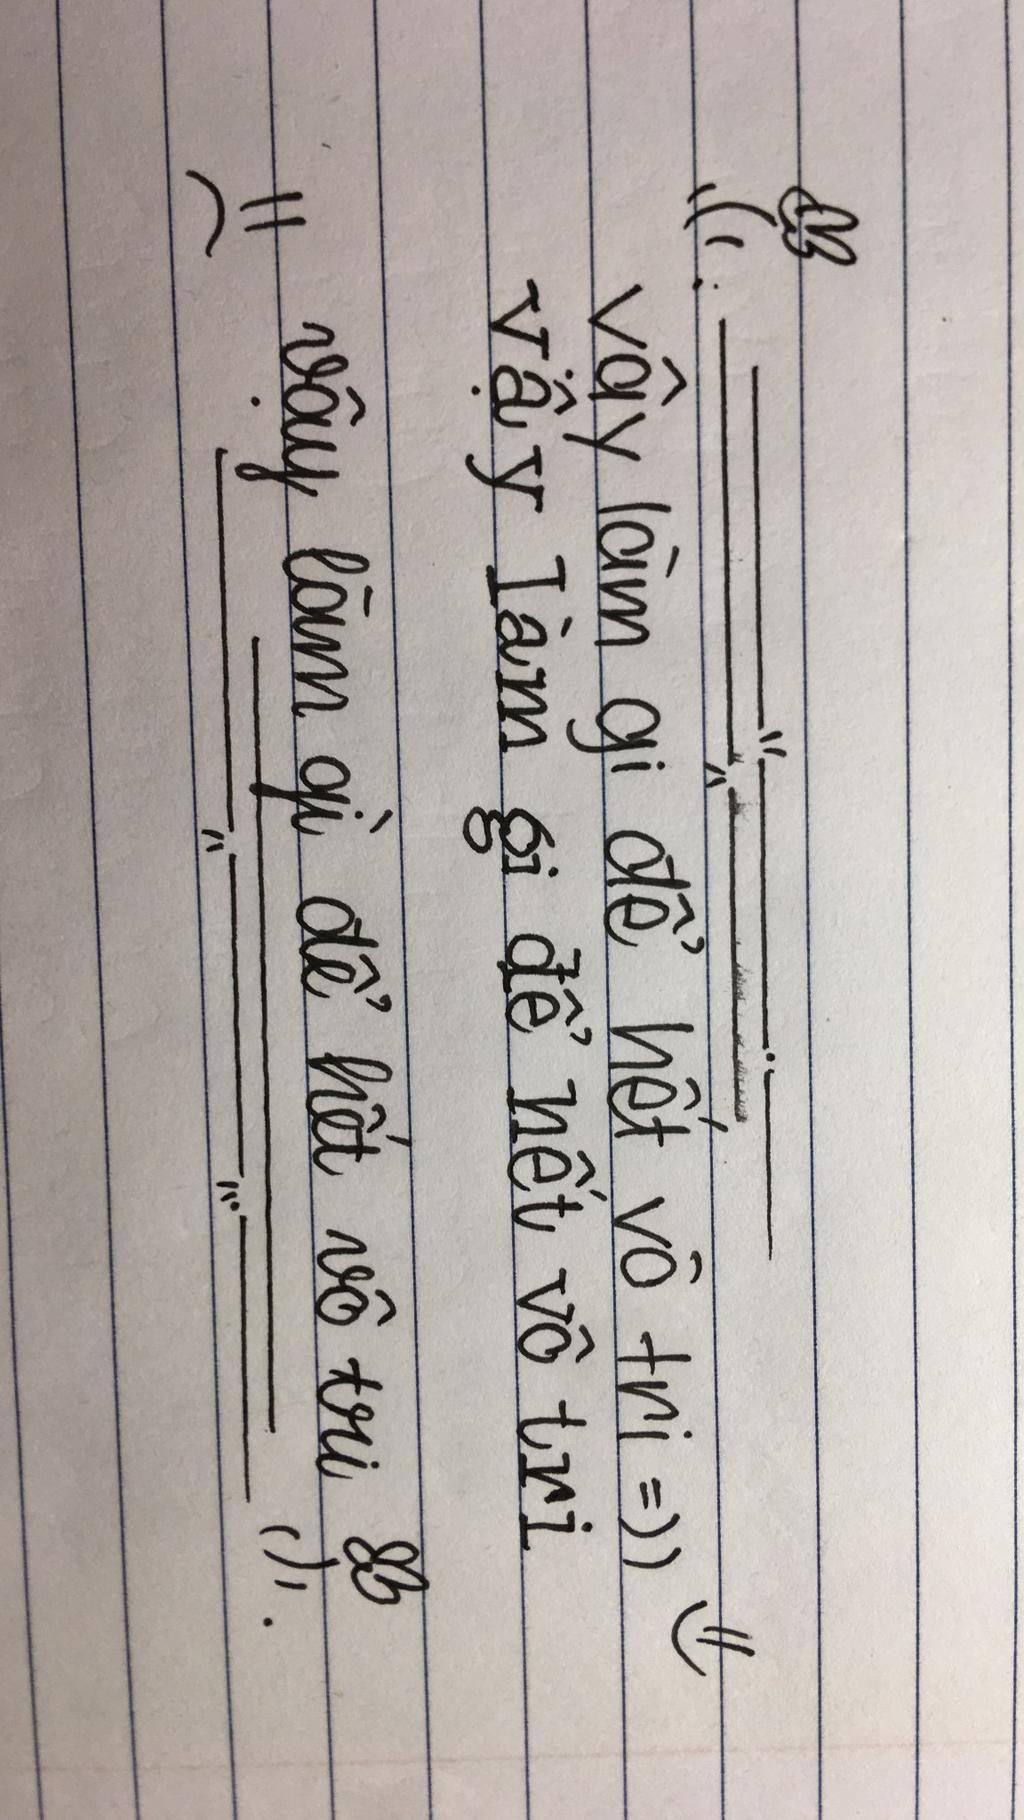 vây làm gi để hết vô tri =))
vậy làm gi để hết vô tri
vậy làm gì để hết vô tri